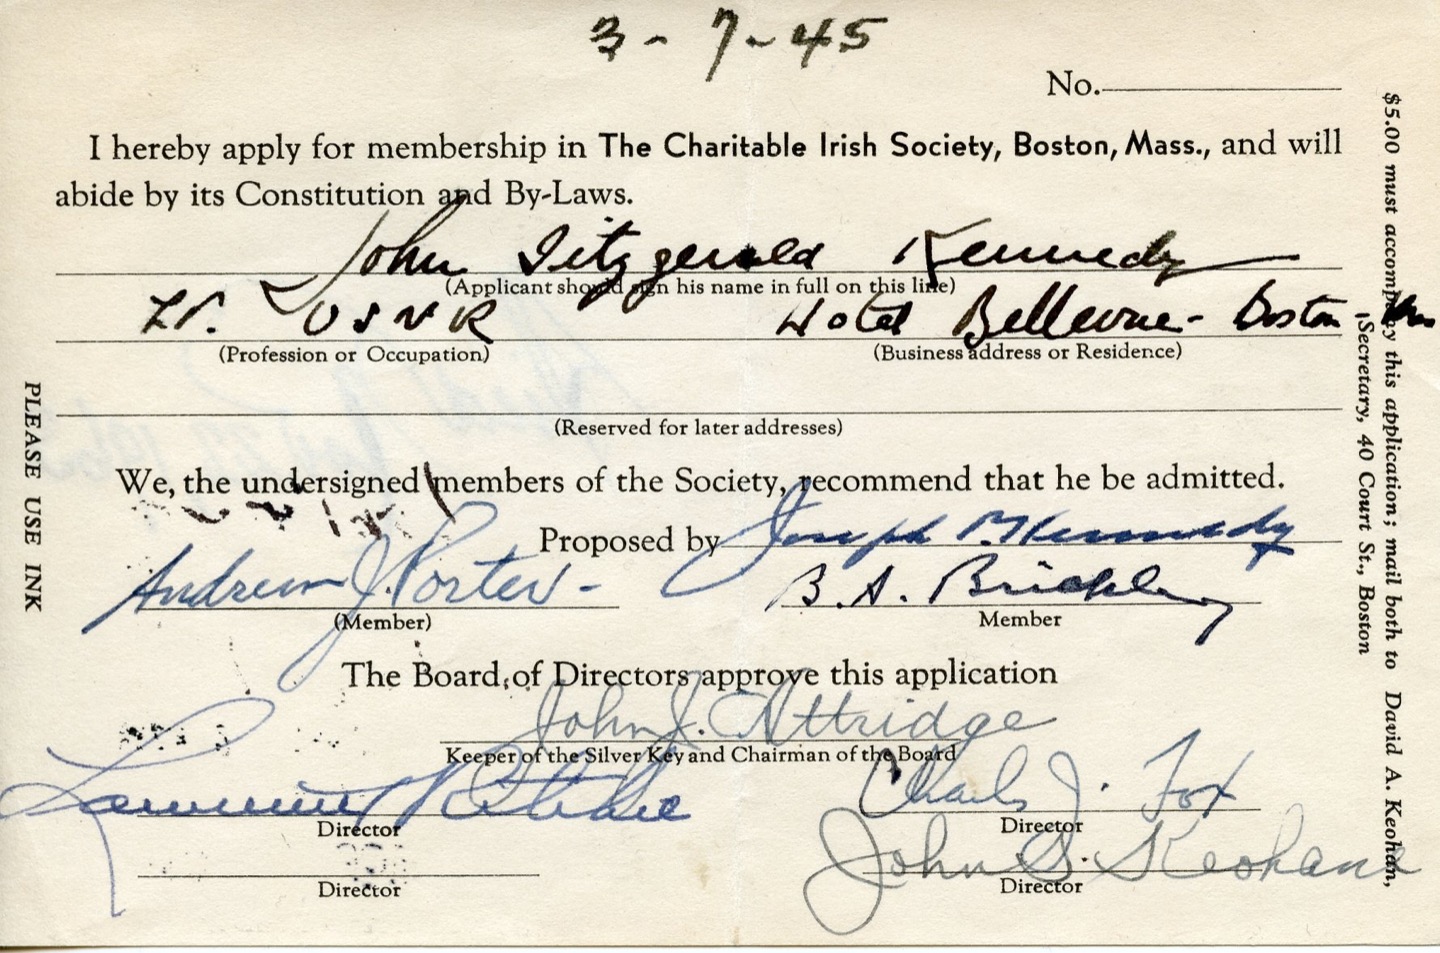 3 - 7 - 45
No.
I hereby apply for membership in The Charitable Irish Society, Boston, Mass., and will
abide by its Constitution and By-Laws.
John Fitzgerald Kennedy
(Applicant should sign his name in full on this line)
Lt. USNR Hotel Bellevue - Boston
(Profession or Occupation) (Business address or Residence)
(Reserved for later addresses)
We, the undersigned members of the Society, recommend that he be admitted.
Proposed by Joseph P. Kennedy
Andrew J. Porter - B. A. Brickley
(Member) Member
The Board of Directors approve this application
John J. Attridge
Keeper of the Silver Key and Chairman of the Board
Charles J. Fox
Director Director
John S. Keohane
Director Director
PLEASE USE INK
$5.00 must accompany this application; mail both to David A. Keohan,
Secretary, 40 Court St., Boston